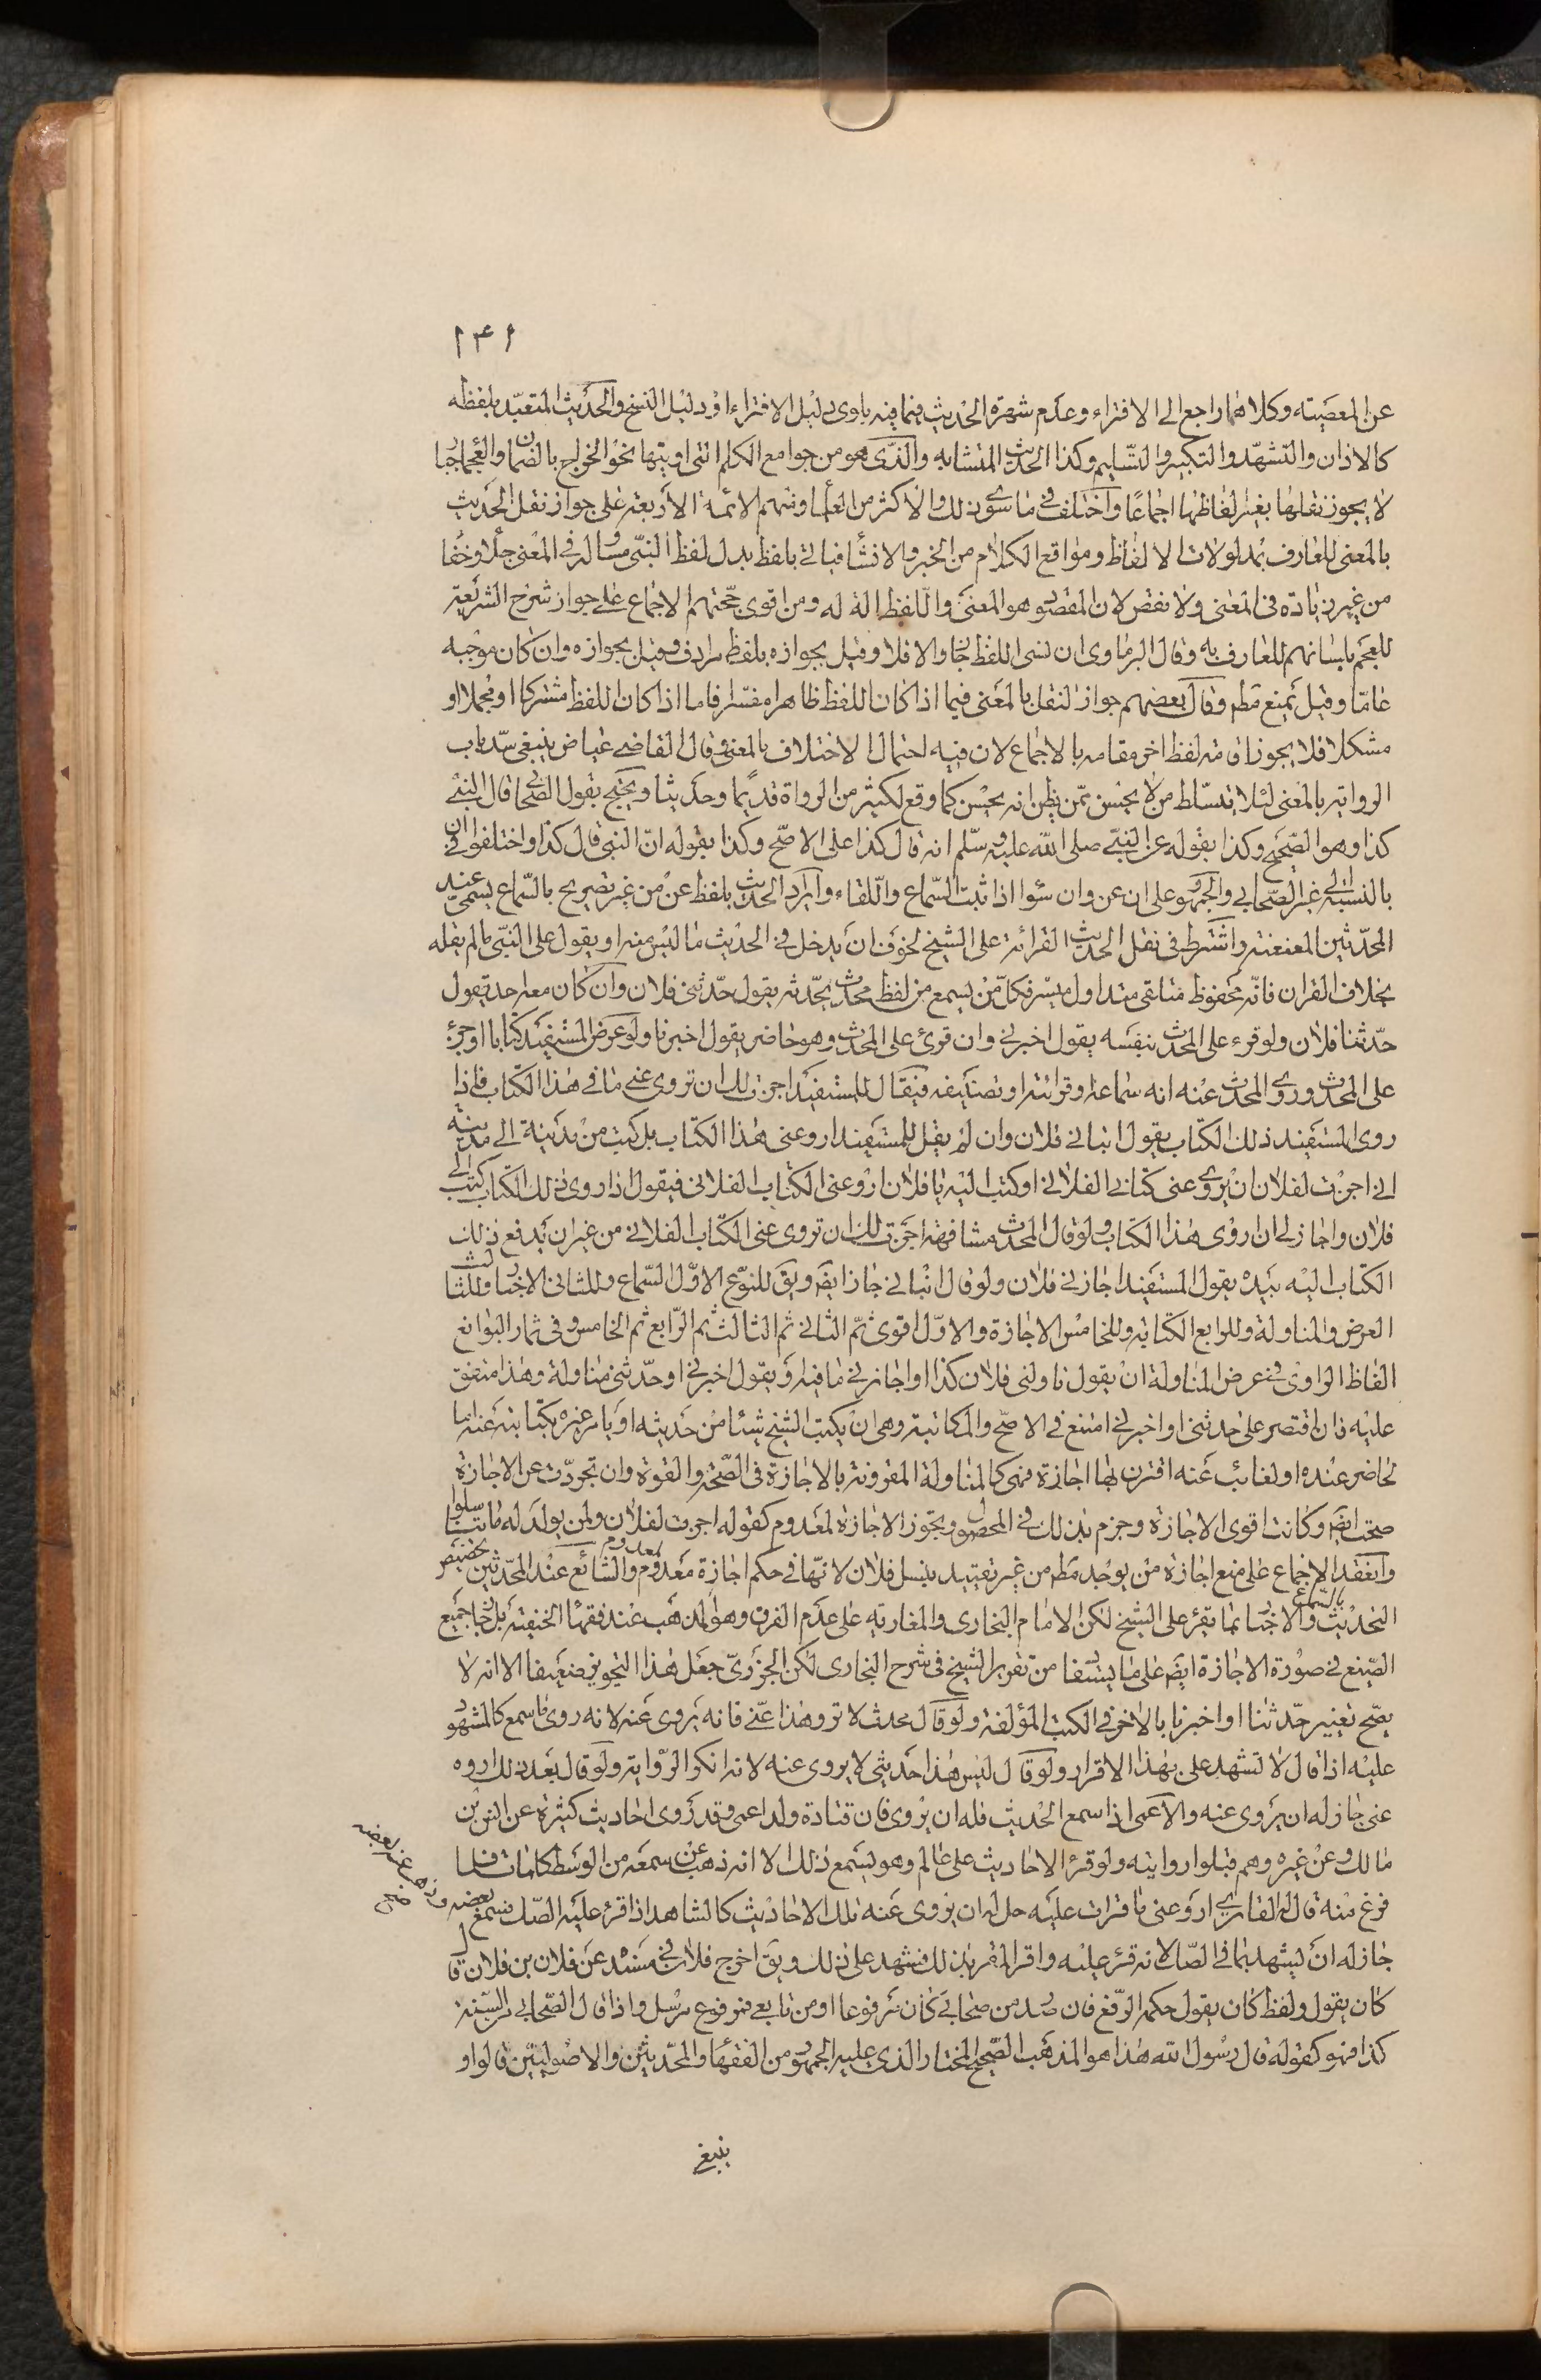 ١٤١
عن المعصيته وكلاهما راجع الى الافتراء وعدم شهرة الحديث فيما فيه باوى دليل الافتراء او دليل النسخ والحديث المتعبد بلفظه
كالاذان والتشهد والتكبير والتسليم وكذا الحديث المتشابه والذى هو من جوامع الكلم التى اوتيتها نحو الخراج بالضمان والعجماء جبار
لا يجوز نقلها بغير لفاظها اجماعا واختلف فى ما سوى ذلك والاكثر من العلما ومنهم الائمة الاربعة على جواز نقل الحديث
بالمعنى للعارف بمدلولات الالفاظ ومواقع الكلام من الخبر والانشاء فياتى بلفظ بدل لفظ النبى مساو له فى المعنى جلاء وخفا
من غير زيادة فى المعنى ولا نقص لان المقصود هو المعنى واللفظ الة له ومن اقوى حجتهم الاجماع على جواز شرح الشريعة
للعجم بلسانهم للعارف به وقال البرماوى ان نسى اللفظ جاز والا فلا وقيل بجوازه بلفظ مرادف وقيل بجوازه وان كان موجبه
عاما وقيل يمنع مطم وقال بعضهم جواز النقل بالمعنى فيما اذا كان اللفظ ظاهرا مفسرا فاما اذا كان اللفظ مشتركا او مجملا او
مشكلا فلا يجوز اقامة لفظ اخر مقامه بالاجماع لان فيه احتمال الاختلاف بالمعنى وقال القاضى عياض ينبغى سد باب
الرواية بالمعنى لئلا يتسلط من لا يحسن ممن يظن انه يحسن كما وقع لكثير من الرواة قديما وحديثا ويحتج بقول الصحابى قال النبى
كذا وهو الصحيح وكذا بقوله عن النبى صلى الله عليه وسلم انه قال كذا على الاصح وكذا بقوله ان النبى قال كذا واختلفوا فى ان
بالنسبة الى غير الصحابى والجمهور على ان عن وان سوا اذا ثبت السماع واللقاء وايراد الحديث بلفظ عن من غير تصريح بالسماع يسمى عند
المحدثين المعنعنة واشترط فى نقل الحديث القرائة على الشيخ لخوف ان يدخل فى الحديث ما ليس منه او يقول على النبى ما لم يقله
بخلاف القران فانه محفوظ متلقى متداول ميسر فكل من يسمع من لفظ محدث يحدثه يقول حدثنى فلان وان كان معه احد يقول
حدثنا فلان ولو قرء على المحدث بنفسه يقول اخبرنى وان قرئ على المحدث وهو حاضر يقول اخبرنا ولو عرض المستفيد كتابا او جزء
على المحدث وروى المحدث عنه انه سماعه وقرائته او تصنيفه فيقال للمستفيد اجزت لك ان تروى عنى ما فى هذا الكتاب فاذا
روى المستفيد ذلك الكتاب يقول انبانى فلان وان لم يقل للمستفيد ارو عنى هذا الكتاب بل كتب من مدينة الى مدينة
انى اجزت لفلان ان يروى عنى كتابى الفلانى او كتب اليه يا فلان ارو عنى الكتاب الفلانى فيقول اذا روى ذلك الكتاب كتب الى
فلان واجاز لى ان اروى هذا الكتاب ولو قال المحدث مشافهة اجزت لك ان تروى عنى الكتاب الفلانى من غير ان يدفع ذلك
الكتاب اليه بيده يقول المستفيد اجازنى فلان ولو قال انبانى جاز ايضه ويق للنوع الاول السماع وللثانى الاخبار وللثالث
العرض والمناولة وللرابع الكتابة وللخامس الاجازة والاول اقوى ثم الثانى ثم الثالث ثم الرابع ثم الخامس وفى ثمار اليوانع
الفاظ الراوى فى عرض المناولة ان يقول ناولنى فلان كذا او اجازنى ما فيه ويقول اخبرنى او حدثنى مناولة وهذا متفق
عليه فان اقتصر على حدثنى او اخبرنى امتنع فى الاصح والمكاتبة وهى ان يكتب الشيخ شئا من حديثه او يامر غيره بكتابته عنه اما
لحاضر عنده او لغائب عنه اقترن بها اجازة فهى كالمناولة المقرونة بالاجازة فى الصحة والقوة وان تجردت عن الاجازة
صحت ايضه وكانت اقوى الاجازة وجزم بذلك فى المحصول وتجوز الاجازة لمعدوم كقوله اجزت لفلان ولمن يولد له ما تناسلوا
وانعقد الاجماع على منع اجازة من يوجد مطم من غير تقييد بنسل فلان لانها فى حكم اجازة معدوم لمعدوم والشائع عند المحدثين تخصيص
التحديث بالسماع والاخبار بما يقرء على الشيخ لكن الامام البخارى والمغاربه على عدم الفرق وهو المذهب عند فقهاء الحنفية بل جاز جميع
الصيغ فى صورة الاجازة ايضه على ما يستفاد من تقرير الشيخ فى شرح البخارى لكن الجزرى جعل هذا التجويز ضعيفا الا انه لا
يصح تغيير حدثنا او اخبرنا بالاخر فى الكتب المؤلفة ولو قال محدث لا ترو هذا عنى فانه يروى عنه لانه روى ما سمع كالمشهود
عليه اذا قال لا تشهد على بهذا الاقرار ولو قال ليس هذا حديثى لا يروى عنه لانه انكر الرواية ولو قال بعد ذلك اروه
عنى جاز له ان يروى عنه والاعمى اذا سمع الحديث فله ان يروى فان قتادة ولد اعمى وقد روى احاديث كثيرة عن انس بن
مالك وعن غيره وهم قبلوا روايته ولو قرئ الاحاديث على عالم وهو يسمع ذلك الا انه ذهب عن سمعه من الوسط كلمات فلما
فرغ منه قال له القارى ارو عنى ما قرات عليه حل له ان يروى عنه تلك الاحاديث كالشاهد اذا قرئ عليه الصك فسمع بعضه وذهب عنه بعضه
صح
جاز له ان يشهد بما فى الصك لانه قرئ عليه واقر المقر بذلك فشهد على ذلك ويق اخرج فلان فى مسند عن فلان بن فلان قال
كان يقول ولفظ كان يقول حكمه الرفع فان صدر من صحابى كان مرفوعا او من تابعى فمرفوع مرسل واذا قال الصحابى من السنة
كذا فهو كقوله قال رسول الله هذا هو المذهب الصحيح المختار الذى عليه الجمهور من الفقهاء والمحدثين والاصوليين قالوا و
ينبغى